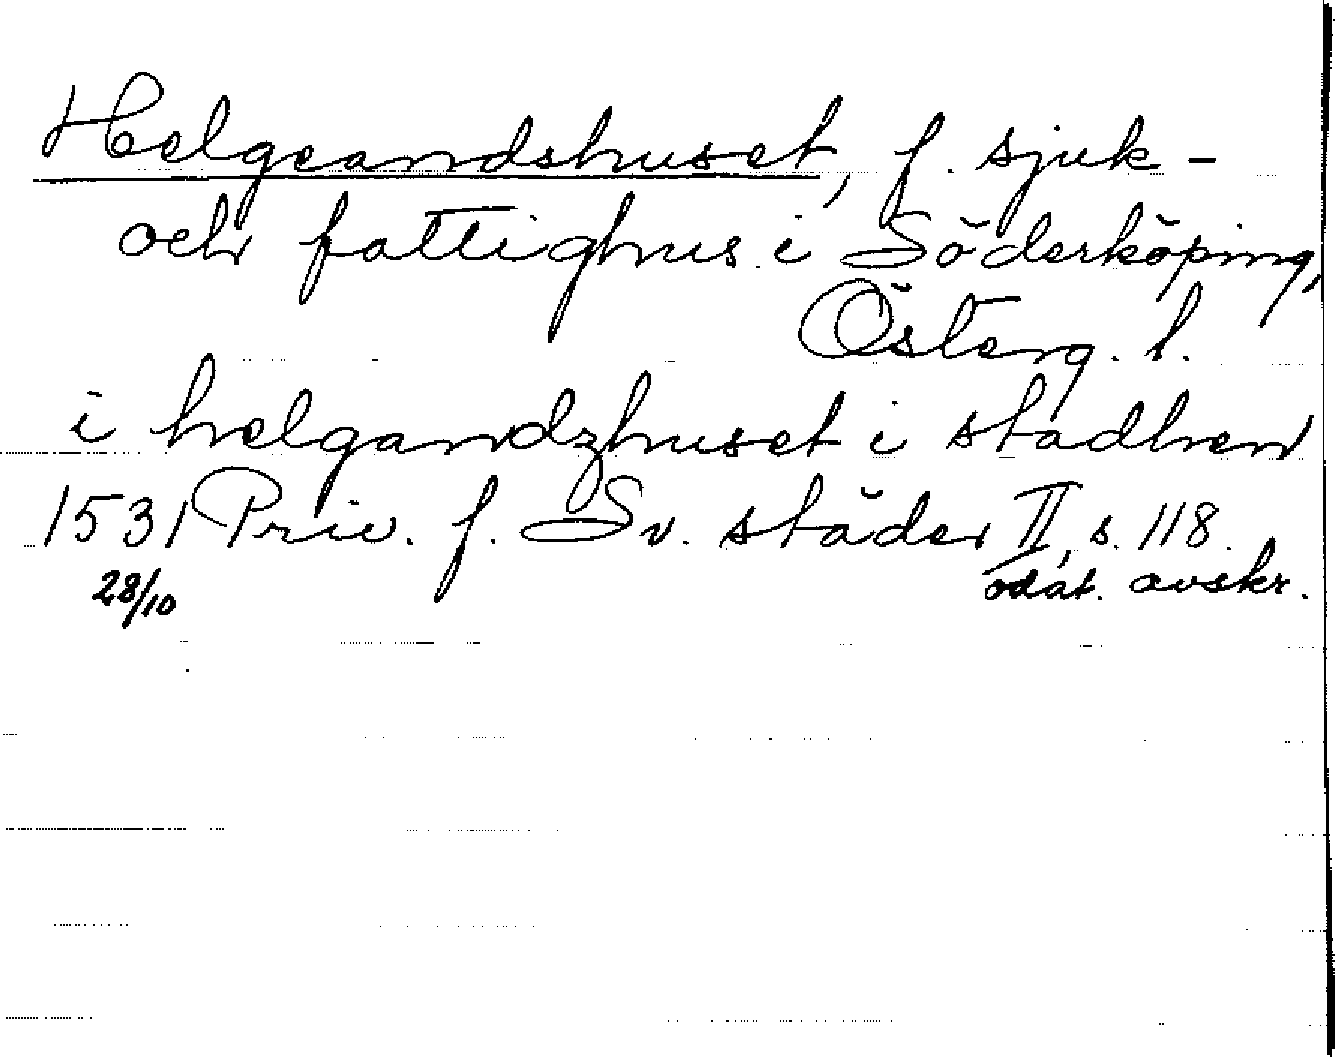 Helgeandshuset, f. sjuk-
och fattighus i Söderköping,
Österg. l.
i helgandzhuset i stadhen
1531 Priv. f. Sv. städer II, s. 118.
28/10 odat. avskr.